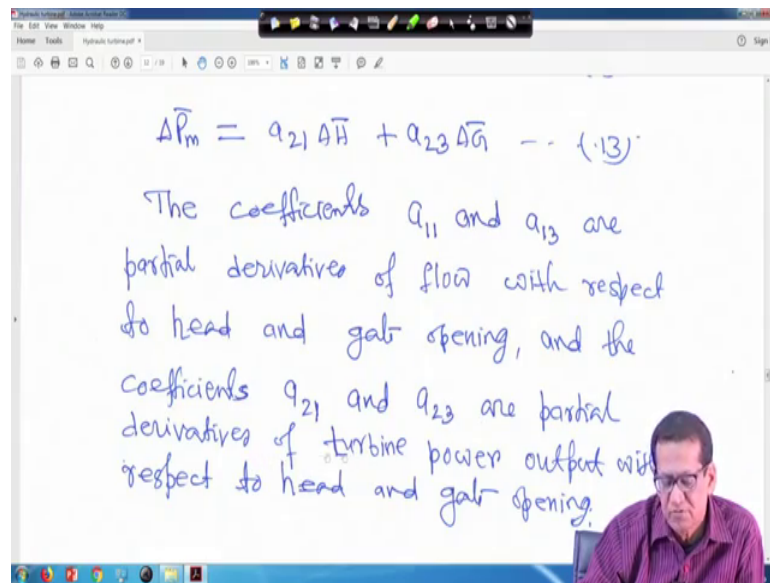 Hydraulic turbine.pdf - Adobe Acrobat Reader DC
File Edit View Window Help
Home Tools Hydraulic turbine.pdf × Sign
ΔP̄m = a21 ΔH̄ + a23 ΔḠ -- (13)
The coefficients a11 and a13 are
partial derivatives of flow with respect
to head and gate opening, and the
coefficients a21 and a23 are partial
derivatives of turbine power output with
respect to head and gate opening.